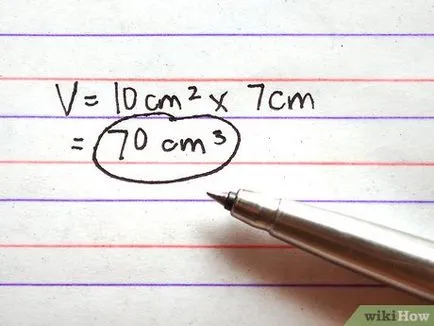 V = 10 cm² x 7cm
= 70 cm³
wikiHow